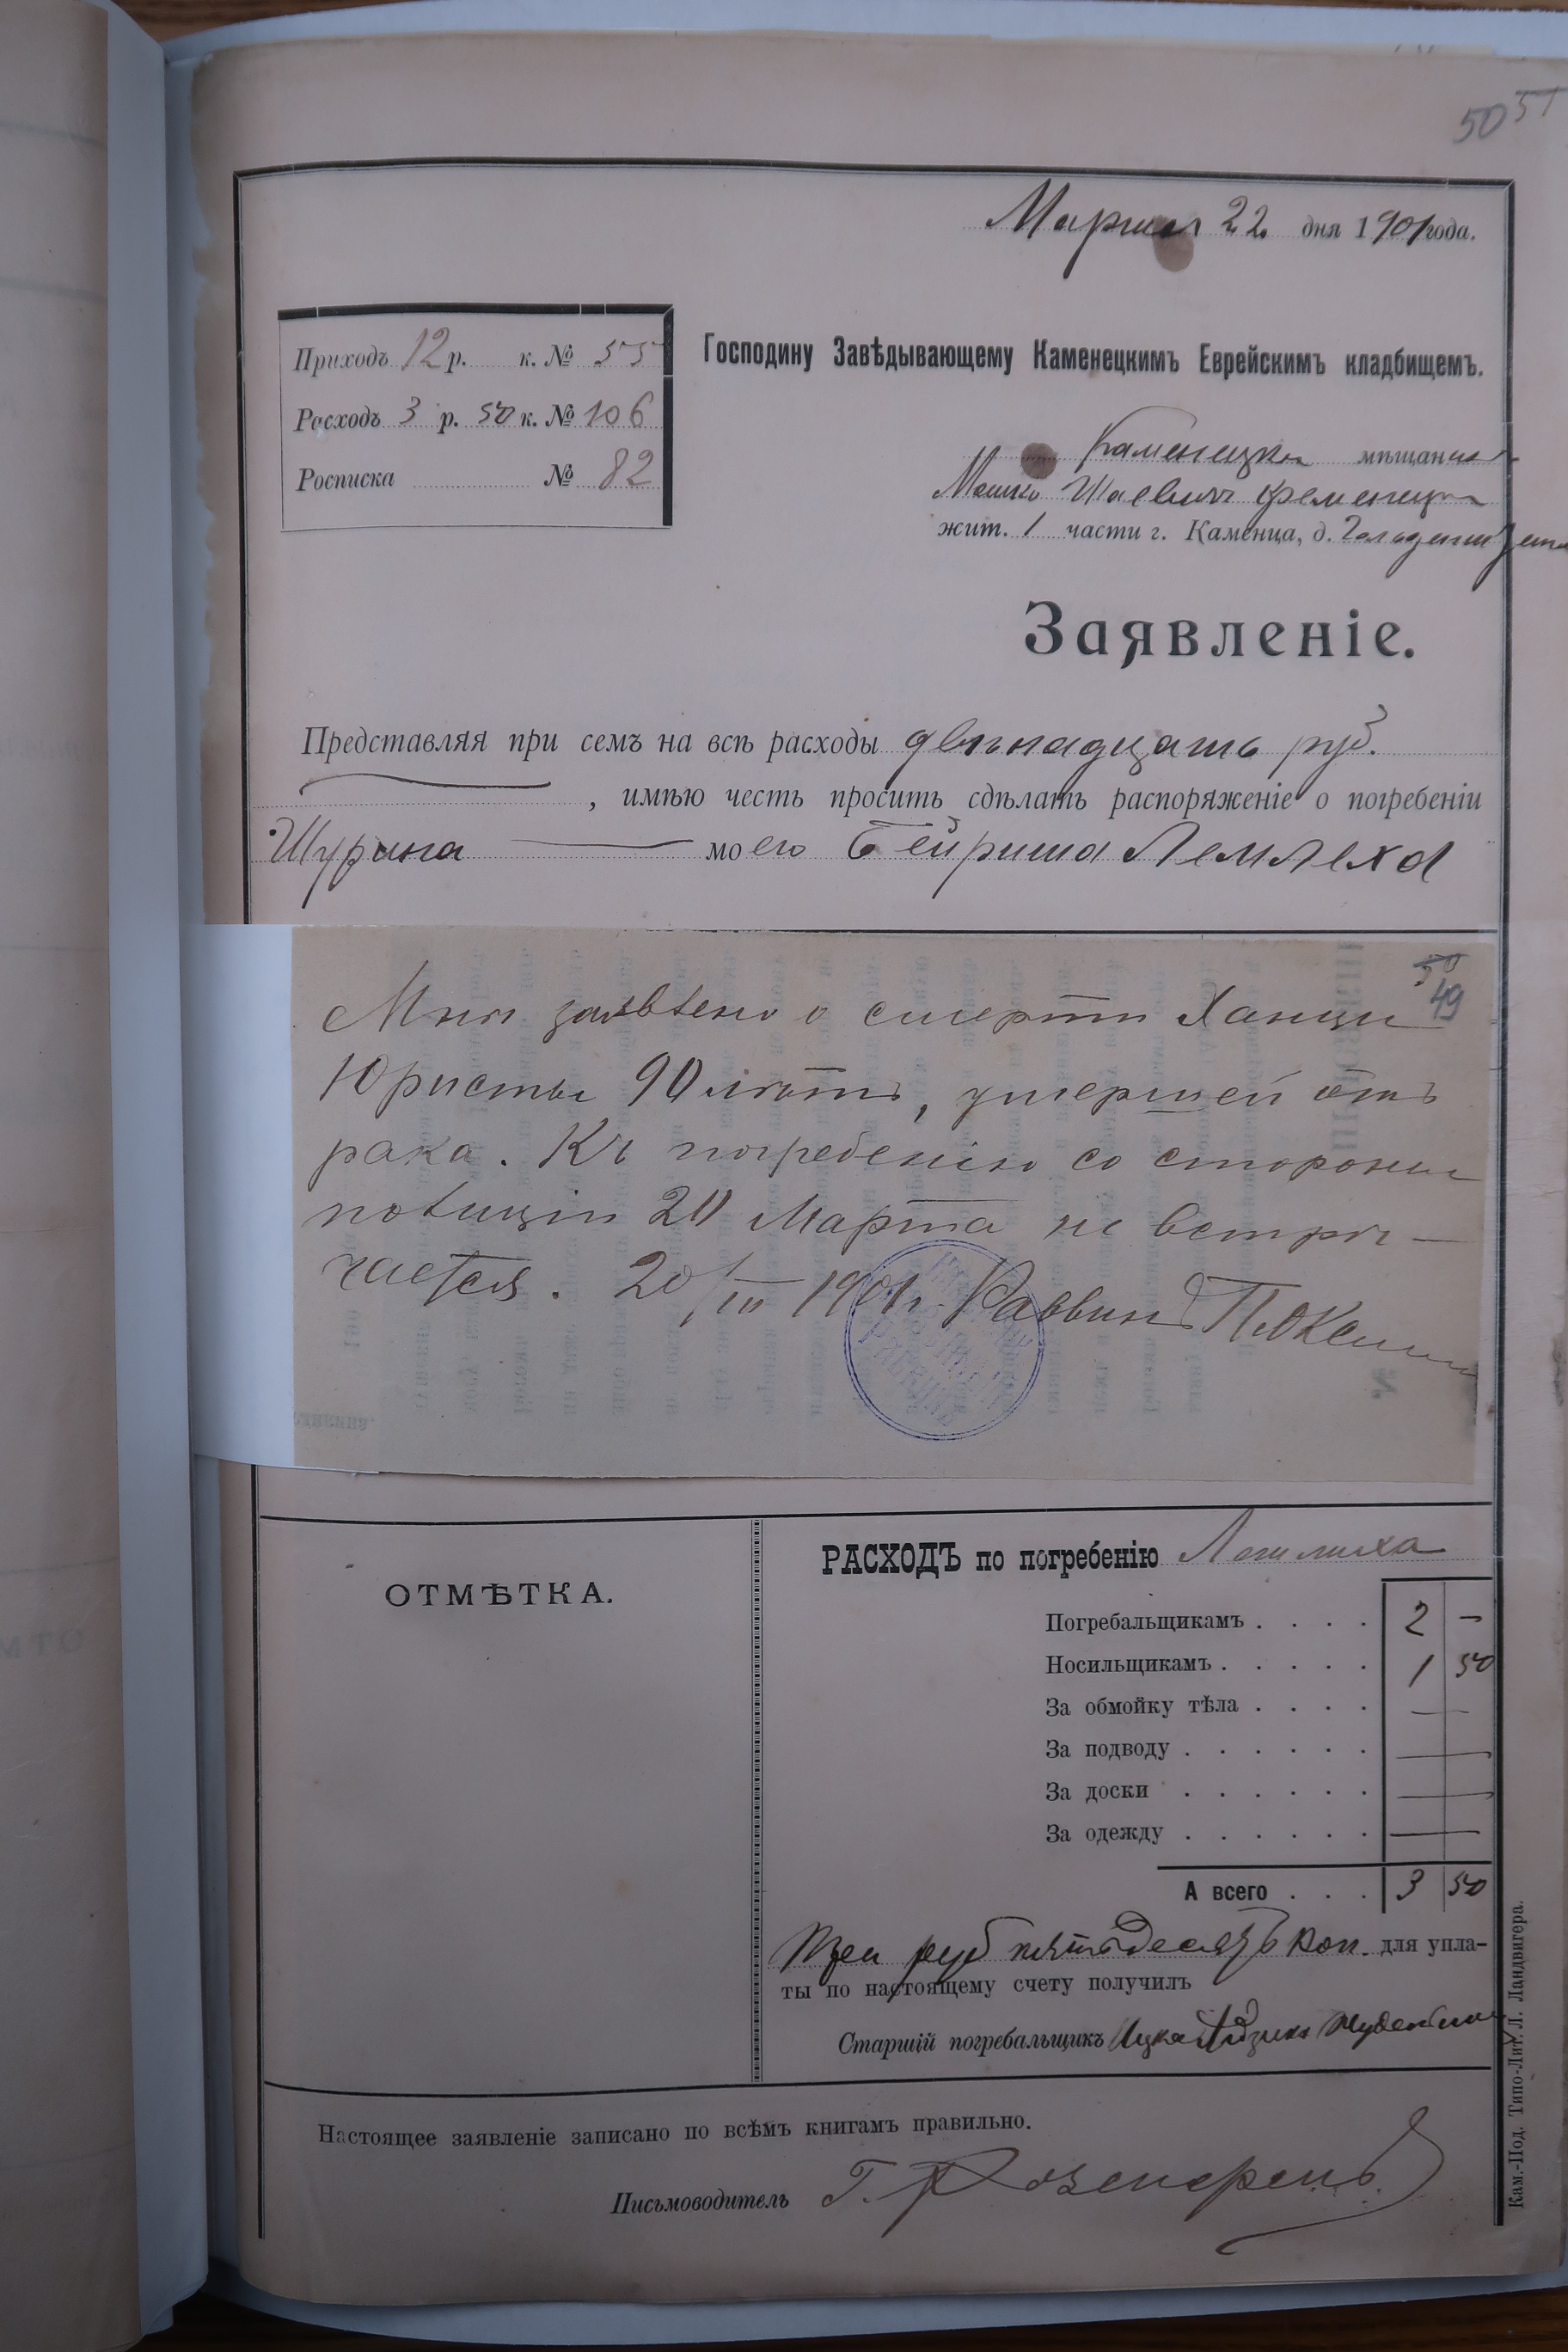 50 51
Марта 22 дня 1901 года.
Приходъ 12 р. к. № 55
Расходъ 3 р. 50 к. № 106
Росписка № 82
Господину Завѣдывающему Каменецкимъ Еврейскимъ кладбищемъ.
Каменецкаго мѣщанина
Мошко Шаевич Кременецкаго
жит. 1 части г. Каменца, д.
Заявленіе.
Представляя при семъ на всѣ расходы двѣнадцать руб.
, имѣю честь просить сдѣлать распоряженіе о погребеніи
Шурина моего Бейриша Лемлеха
50
49
Мнѣ заявлено о смерти Ханци
Юристы 90 лѣтъ, умершей отъ
рака. Къ погребенію со стороны
полиціи 20 Марта не встрѣ-
чается. 20/III 1901 г. Раввинъ
ОТМѢТКА.
РАСХОДЪ по погребенію Лемлиха
Погребальщикамъ . . . . 2 —
Носильщикамъ . . . . . 1 50
За обмойку тѣла . . . . —
За подводу . . . . . . —
За доски . . . . . . —
За одежду . . . . . . —
А всего . . . 3 50
Три руб пятьдесятъ коп. для упла-
ты по настоящему счету получилъ
Старшій погребальщикъ Ицко
Настоящее заявленіе записано по всѣмъ книгамъ правильно.
Письмоводитель Г. Розенкренъ
Кам.-Под. Типо-Лит. Л. Ландвигера.